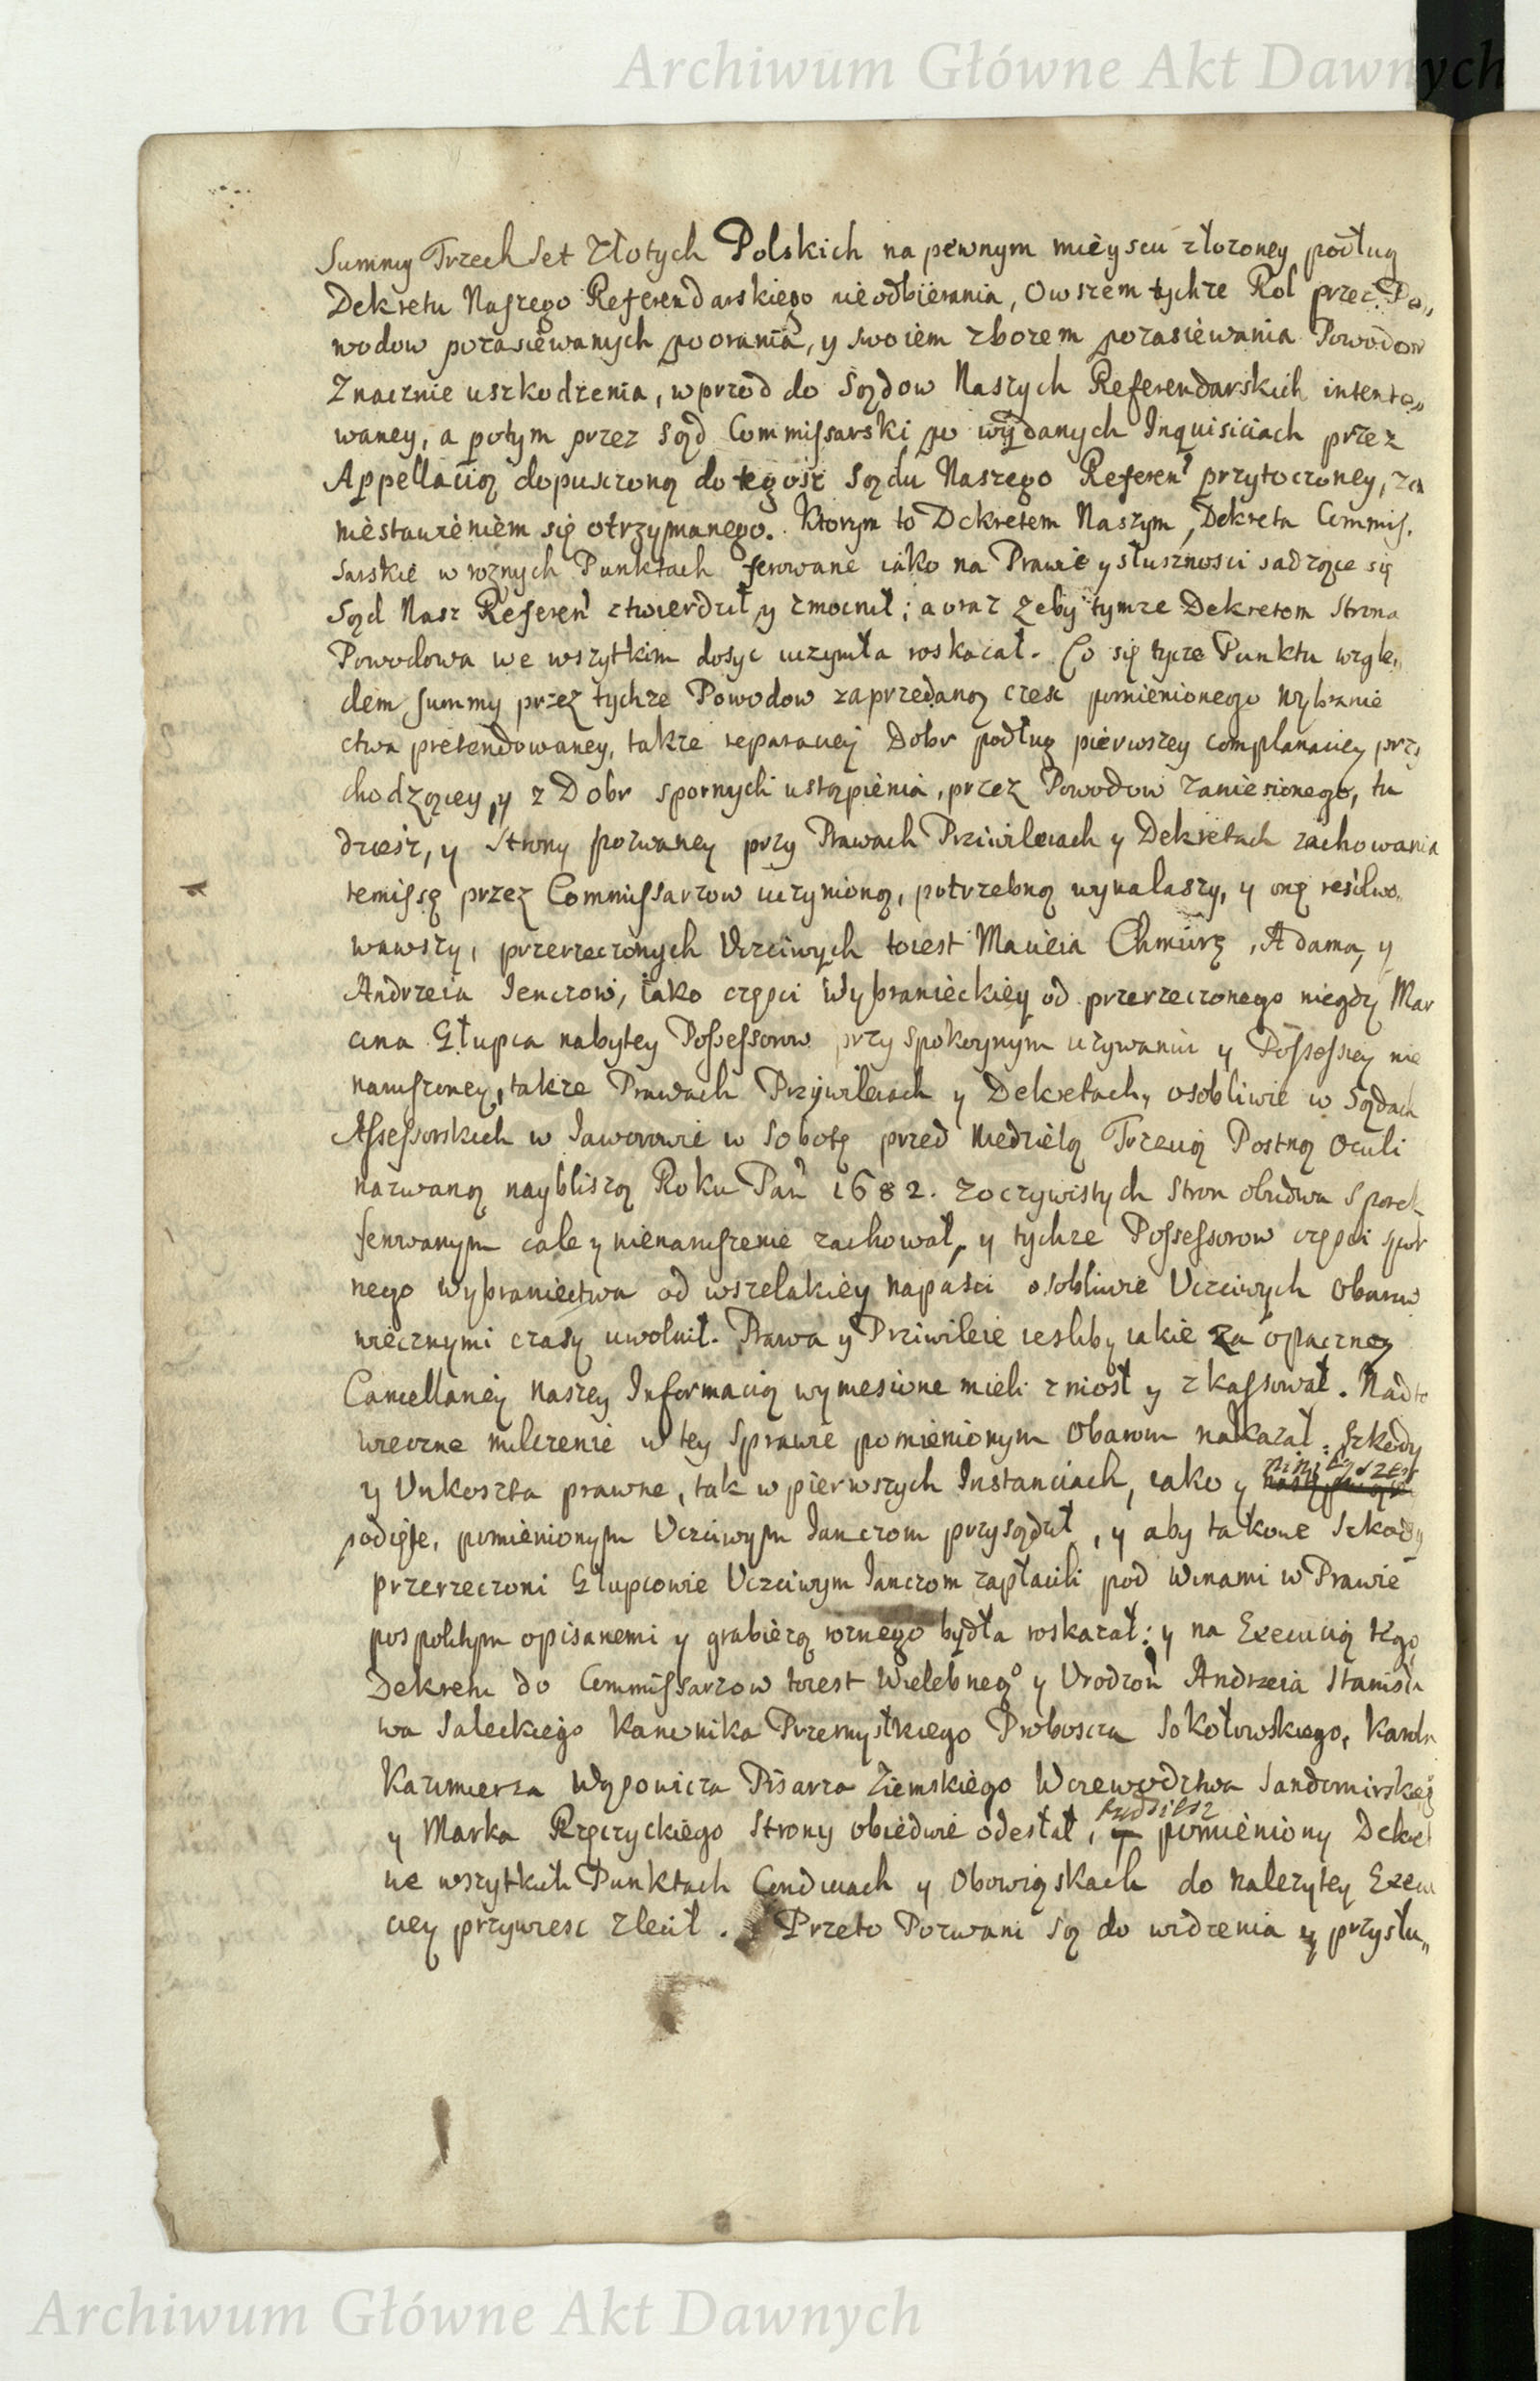 Archiwum Główne Akt Dawnych
Summy Trzech Set Złotych Polskich na pewnym mieyscu złozoney podług
Dekretu Naszego Referendarskiego nieodbierania, Owszem tychze Rol przez Po„
wodow pozasiewanych poorania, y swoiem zborem pozasiewania Powodow
Znacznie uszkodzenia, wprzod do Sądow Naszych Referendarskich intento„
waney, a potym przez Sąd Commissarski po wydanych Inquisiciach przez
Appellacią dopuszczoną do tegosz Sądu Naszego Referen przytoczoney, za
niestawieniem się otrzymanego. Ktorym to Dekretem Naszym, Dekreta Commis.
sarskie w roznych Punktach ferowane iako na Prawie y słusznosci sadzące się
Sąd Nasz Referen ztwierdził y zmocnił; a oraz zeby tymze Dekretom Strona
Powodowa we wszytkim dosyc uczyniła roskazał. Co się tycze Punktu wzglę„
dem summy przez tychze Powodow zaprzedaną czesc pomienionego Wybranie
ctwa pretendowaney, takze reparaciey Dobr podług pierwszey complanaciey przy
chodzącey, y z Dobr spornych ustąpienia, przez Powodow zaniesionego, tu
dziesz, y Strony pozwaney przy Prawach Przivileiach y Dekretach zachowania
remissę przez Commissarzow uczynioną, potrzebną wynalaszy, y onę resolwo„
wawszy, przerzeczonych Uczciwych toiest Macieia Chmurę, Adama, y
Andrzeia Ienczow, iako częsci Wybranieckiey od przerzeczonego niegdy Mar
cina Głupca nabytey Possessorow przy spokoynym uzywaniu y Possessiey nie
naruszoney, takze Prawach Przywileiach y Dekretach, osobliwie w Sądach
Assessorskich w Iaworowie w Sobotę przed Niedzielą Trzecią Postną Oculi
nazwaną naybliszą Roku Pań 1682. zoczywistych Stron obudwu Sporek
ferowanym cale y nienaruszenie zachował, y tychze Possessorow częsci spor
nego Wybraniectwa od wszelakiey napasci osobliwie Uczciwych Obarow
wiecznymi czasy uwolnił. Prawa y Przivileie iesliby iakie za opaczną
Cancellariey naszey Informacią wyniesione mieli zniosł y zkassował. Nadto
wieczne milczenie w tey Sprawie pomienionym Obarom nakazał: Szkody
y Unkoszta prawne, tak w pierwszych Instanciach, iako y ninieyszey
podięte, pomienionym Uczciwym Ianczom przysądził, y aby takowe Szkody
przerzeczoni Głupcowie Uczciwym Ianczom zapłacili pod winami w Prawie
pospolitym opisanemi y grabiezą roznego bydła roskazał: y na Execucią tego
Dekretu do Commissarzow toiest Wielebneg° y Urodzoń Andrzeia Stanisła
wa Saleckiego Kanonika Przemyskiego Proboscza Sokołowskiego, Karola
Kazimierza Wyzowicza Pisarza Ziemskiego Woiewodztwa Sandomirskieg
y Marka Rzęczyckiego Strony obiedwie odesłał, tudziesz pomieniony Dekret
we wszytkich Punktach Condiciach y Obowiąskach do nalezytey Execu
ciey przywiesc zlecił. Przeto Pozwani są do widzenia y przysłu„
Archiwum Główne Akt Dawnych